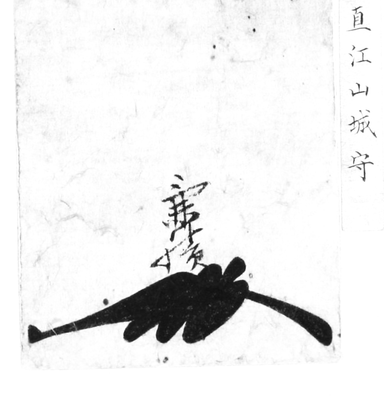 直江山城守
兼続